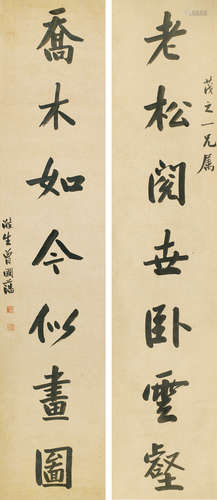 茂之一兄属
老松閱世臥雲壑
喬木如今似畫圖
滌生曾國藩